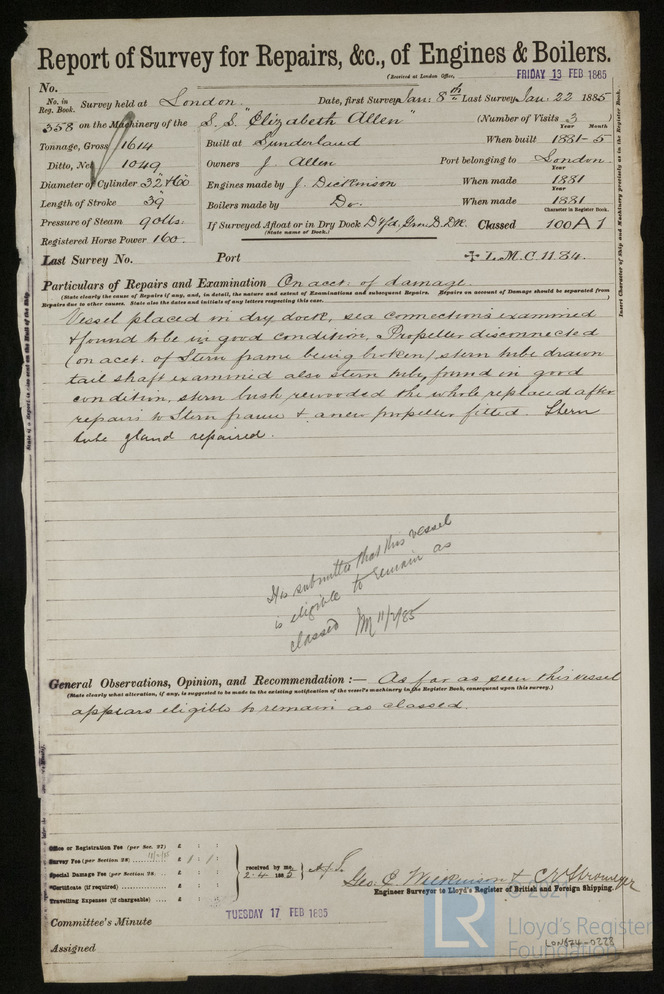 Report of Survey for Repairs, &c., of Engines & Boilers.
(Received at London Office, FRIDAY 13 FEB 1885
No.
No. in Reg. Book. Survey held at London Date, first Survey Jan: 8th Last Survey Jan 22 1885
358 on the Machinery of the S.S. "Elizabeth Allen" (Number of Visits 3)
Tonnage, Gross 1614 Built at Sunderland When built Year 1881 Month 5
Ditto, Net 1049 Owners J. Allen Port belonging to London
Diameter of Cylinder 32 & 60 Engines made by J. Dickinson When made Year 1881
Length of Stroke 39 Boilers made by Do. When made Year 1881
Pressure of Steam 90 lbs. If Surveyed Afloat or in Dry Dock Classed Character in Register Book. 100 A 1
(State name of Dock.)
Registered Horse Power 160.
Last Survey No. Port L.M.C. 11.84.
Particulars of Repairs and Examination On acct. of damage.
(State clearly the cause of Repairs if any, and, in detail, the nature and extent of Examinations and subsequent Repairs. Repairs on account of Damage should be separated from
Repairs due to other causes. State also the dates and initials of any letters respecting this case.)
Vessel placed in dry dock, sea connections examined
& found to be in good condition, Propeller disconnected
(on acct. of Stern frame being broken) stern tube drawn
tail shaft examined also stern tube, found in good
condition, stern bush rewooded the whole replaced after
repairs to Stern frame & a new propeller fitted. Stern
tube gland repaired.
It is submitted that this vessel
is eligible to remain as
classed 11/2/85
General Observations, Opinion, and Recommendation :— As far as seen this vessel
(State clearly what alteration, if any, is suggested to be made in the existing notification of the vessel's machinery in the Register Book, consequent upon this survey.)
appears eligible to remain as classed.
Office or Registration Fee (per Sec. 27) £ : :
Survey Fee (per Section 28) £ 1 : 1 :
Special Damage Fee (per Section 28) £ : :
*Certificate (if required) £ : :
Travelling Expenses (if chargeable) £ : :
received by me,
2.4 1885
Geo. E. Wilkinson & C. E. Stromeyer
Engineer Surveyor to Lloyd's Register of British and Foreign Shipping.
Committee's Minute TUESDAY 17 FEB 1885
Assigned
LR
© 2021
Lloyd's Register
Foundation
LON674-0228
Insert Character of Ship and Machinery precisely as in the Register Book.